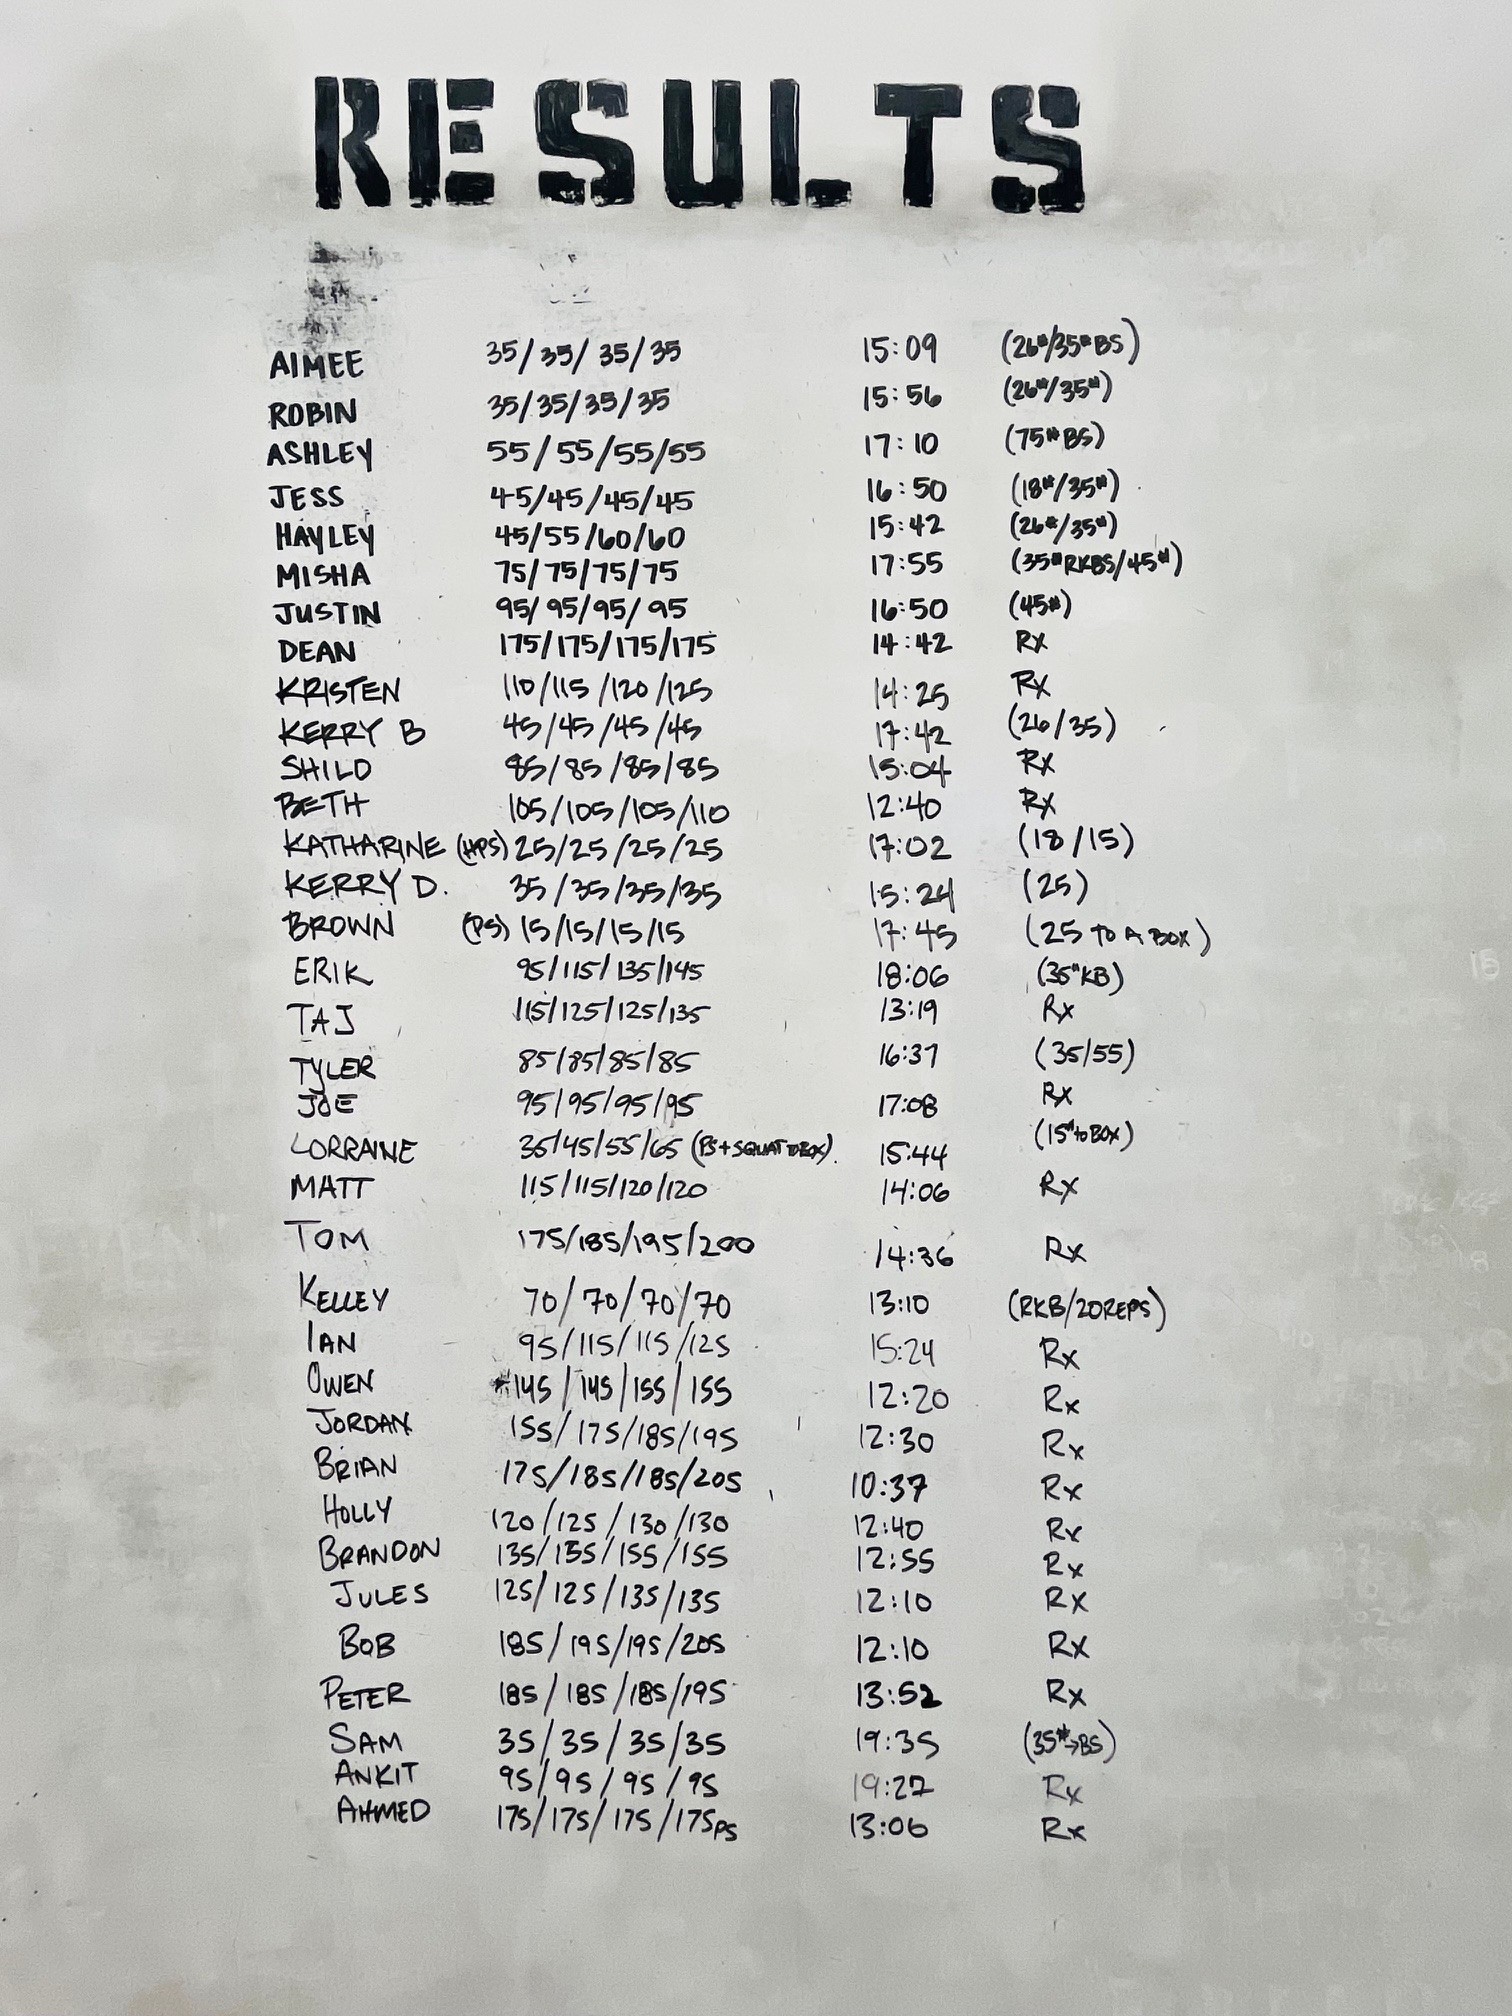 RESULTS
AIMEE 35/35/35/35 15:09 (26#/35#BS)
ROBIN 35/35/35/35 15:56 (26#/35#)
ASHLEY 55/55/55/55 17:10 (75#BS)
JESS 45/45/45/45 16:50 (18#/35#)
HAYLEY 45/55/60/60 15:42 (26#/35#)
MISHA 75/75/75/75 17:55 (35#RKBS/45#)
JUSTIN 95/95/95/95 16:50 (45#)
DEAN 175/175/175/175 14:42 Rx
KRISTEN 110/115/120/125 14:25 Rx
KERRY B 45/45/45/45 17:42 (26/35)
SHILO 85/85/85/85 15:04 Rx
BETH 105/105/105/110 12:40 Rx
KATHARINE (HPS) 25/25/25/25 17:02 (18/15)
KERRY D. 35/35/35/35 15:24 (25)
BROWN (PS) 15/15/15/15 17:45 (25 TO A BOX)
ERIK 95/115/135/145 18:06 (35#KB)
TAJ 115/125/125/135 13:19 Rx
TYLER 85/85/85/85 16:37 (35/55)
JOE 95/95/95/95 17:08 Rx
LORRAINE 35/45/55/65 (PS+SQUAT TO BOX) 15:44 (15# to BOX)
MATT 115/115/120/120 14:06 Rx
TOM 175/185/195/200 14:36 Rx
KELLEY 70/70/70/70 13:10 (RKB/20REPS)
IAN 95/115/115/125 15:24 Rx
OWEN 145/145/155/155 12:20 Rx
JORDAN 155/175/185/195 12:30 Rx
BRIAN 175/185/185/205 10:37 Rx
HOLLY 120/125/130/130 12:40 Rx
BRANDON 135/155/155/155 12:55 Rx
JULES 125/125/135/135 12:10 Rx
BOB 185/195/195/205 12:10 Rx
PETER 185/185/185/195 13:52 Rx
SAM 35/35/35/35 19:35 (35#→BS)
ANKIT 95/95/95/95 19:27 Rx
AHMED 175/175/175/175PS 13:06 Rx